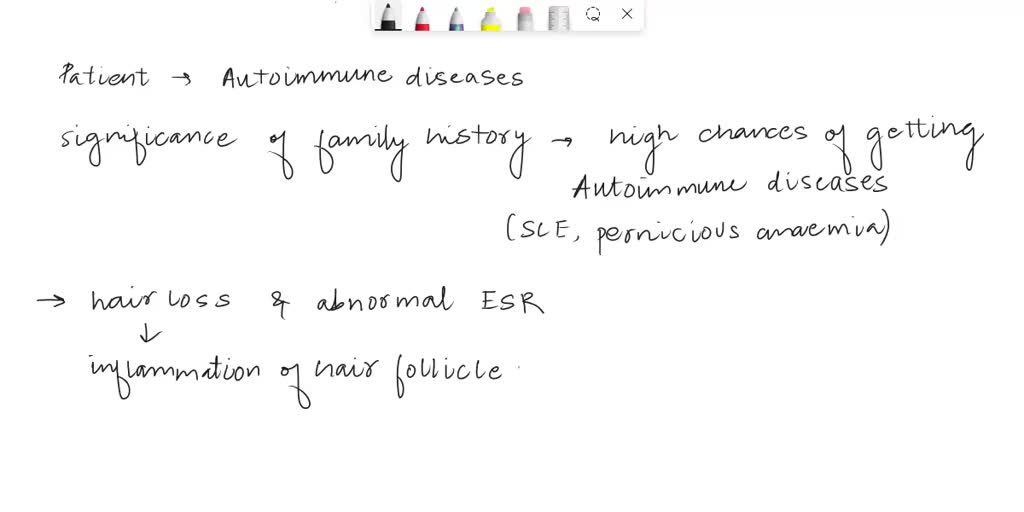 Patient → Autoimmune diseases
significance of family history → high chances of getting
Autoimmune diseases
(SLE, pernicious anaemia)
→ hair loss & abnormal ESR
↓
inflammation of hair follicle